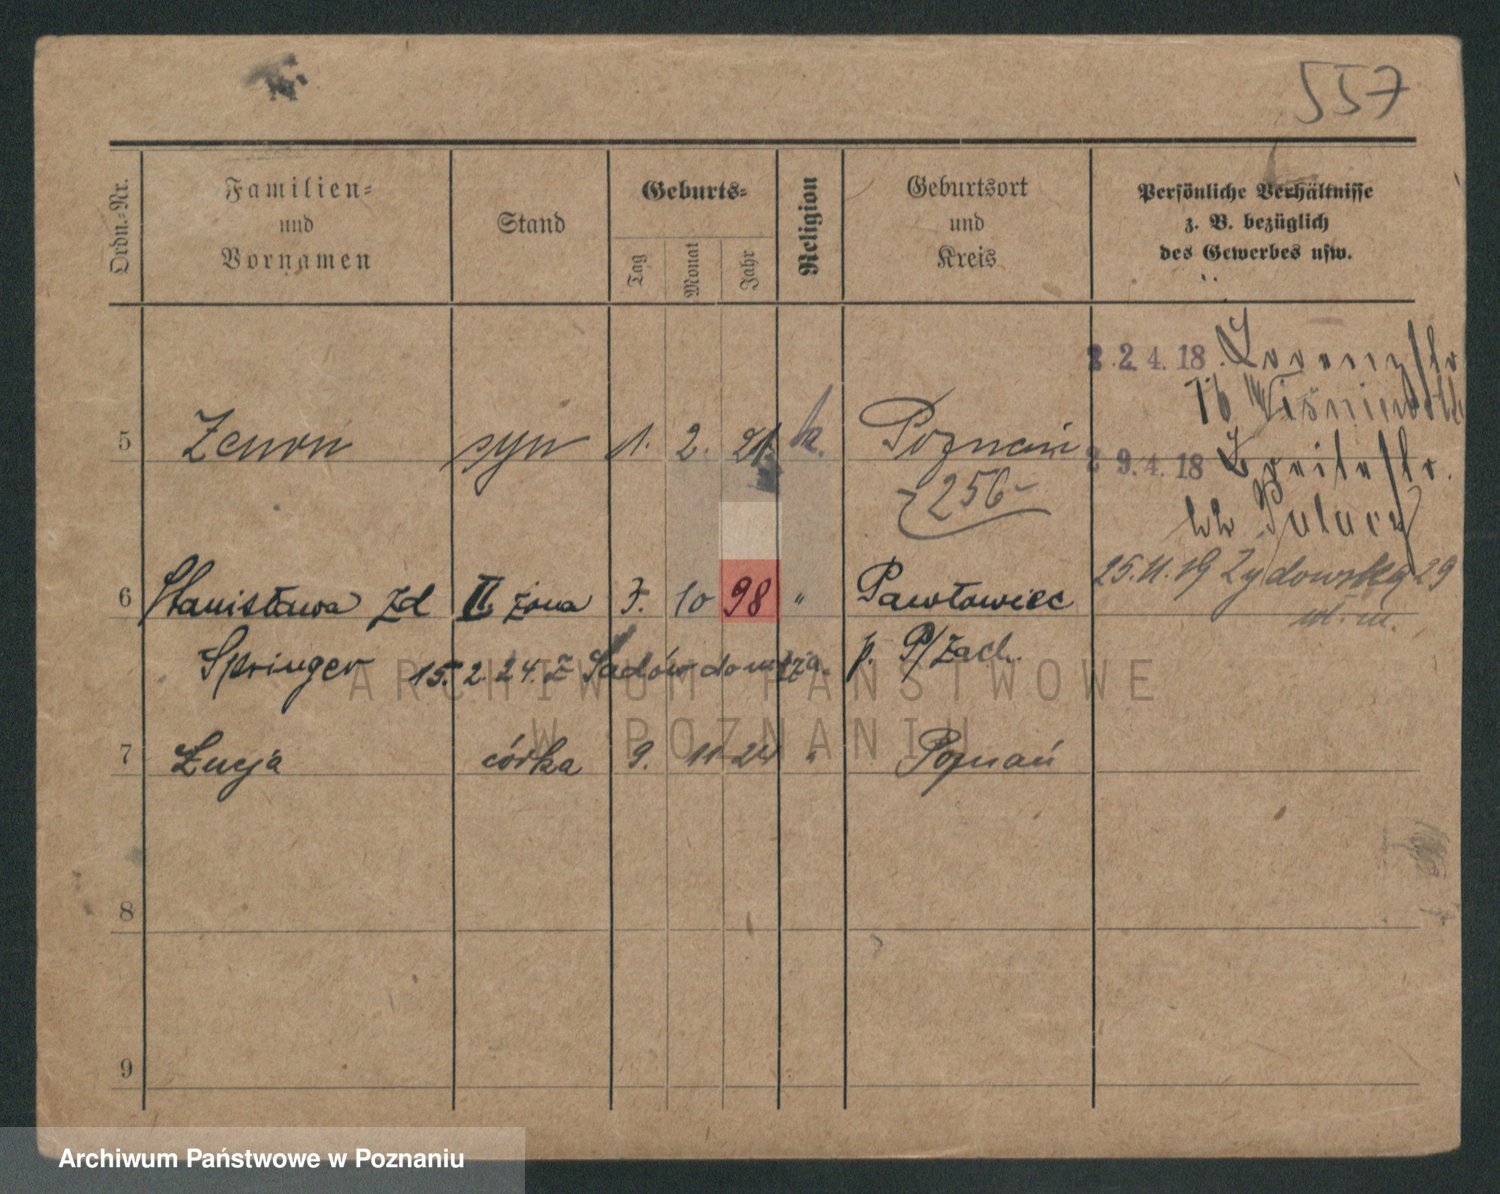 557
Ordn.-Nr.
Familien-
und
Vornamen
Stand
Geburts-
Tag
Monat
Jahr
Religion
Geburtsort
und
Kreis
Persönliche Verhältnisse
z. B. bezüglich
des Gewerbes usw.
22.4.18. Lorenzstr
7b Wiśniewski
5 Zenon syn 1. 2. 21. k. Poznań
29.4.18 Breitestr.
256
25.11.19 Żydowska 29
6 Stanisława zd II żona 7. 10 98 " Pawłowiec
Springer 15.2.24. Z Sadów p. P/Zach.
7 Łucja córka 9. 11 24 " Poznań
8
9
ARCHIWUM PAŃSTWOWE
W POZNANIU
Archiwum Państwowe w Poznaniu